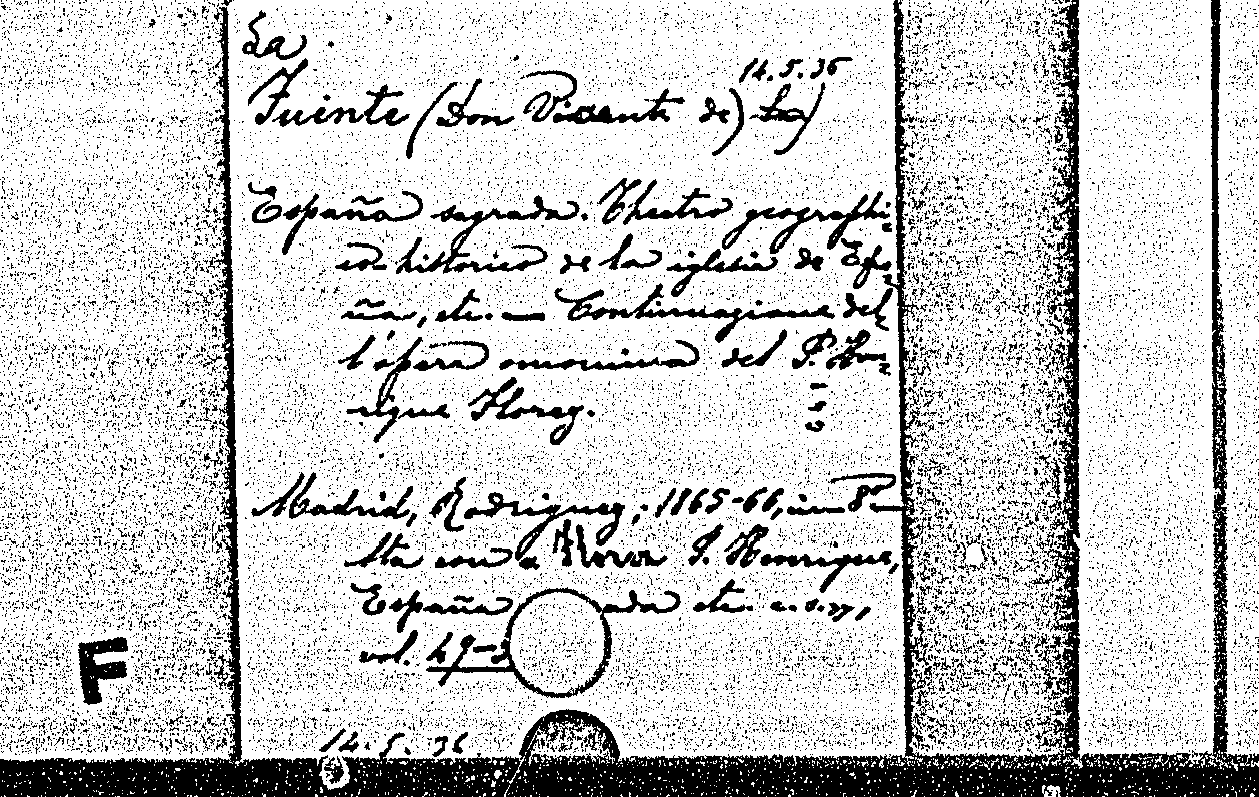 La
14.5.36
Fuente (Don Vicente de) La)
España sagrada. Theatro geographi=
co-historico de la iglesia de Espa=
ña, etc. — Continuazione del=
l'opera omonima del P. Hen=
rique Florez.
Madrid, Rodriguez, 1865-66, in 8º
Sta con a Florez P. Henrique,
España ada etc.
vol. 49-
F
14.5.36